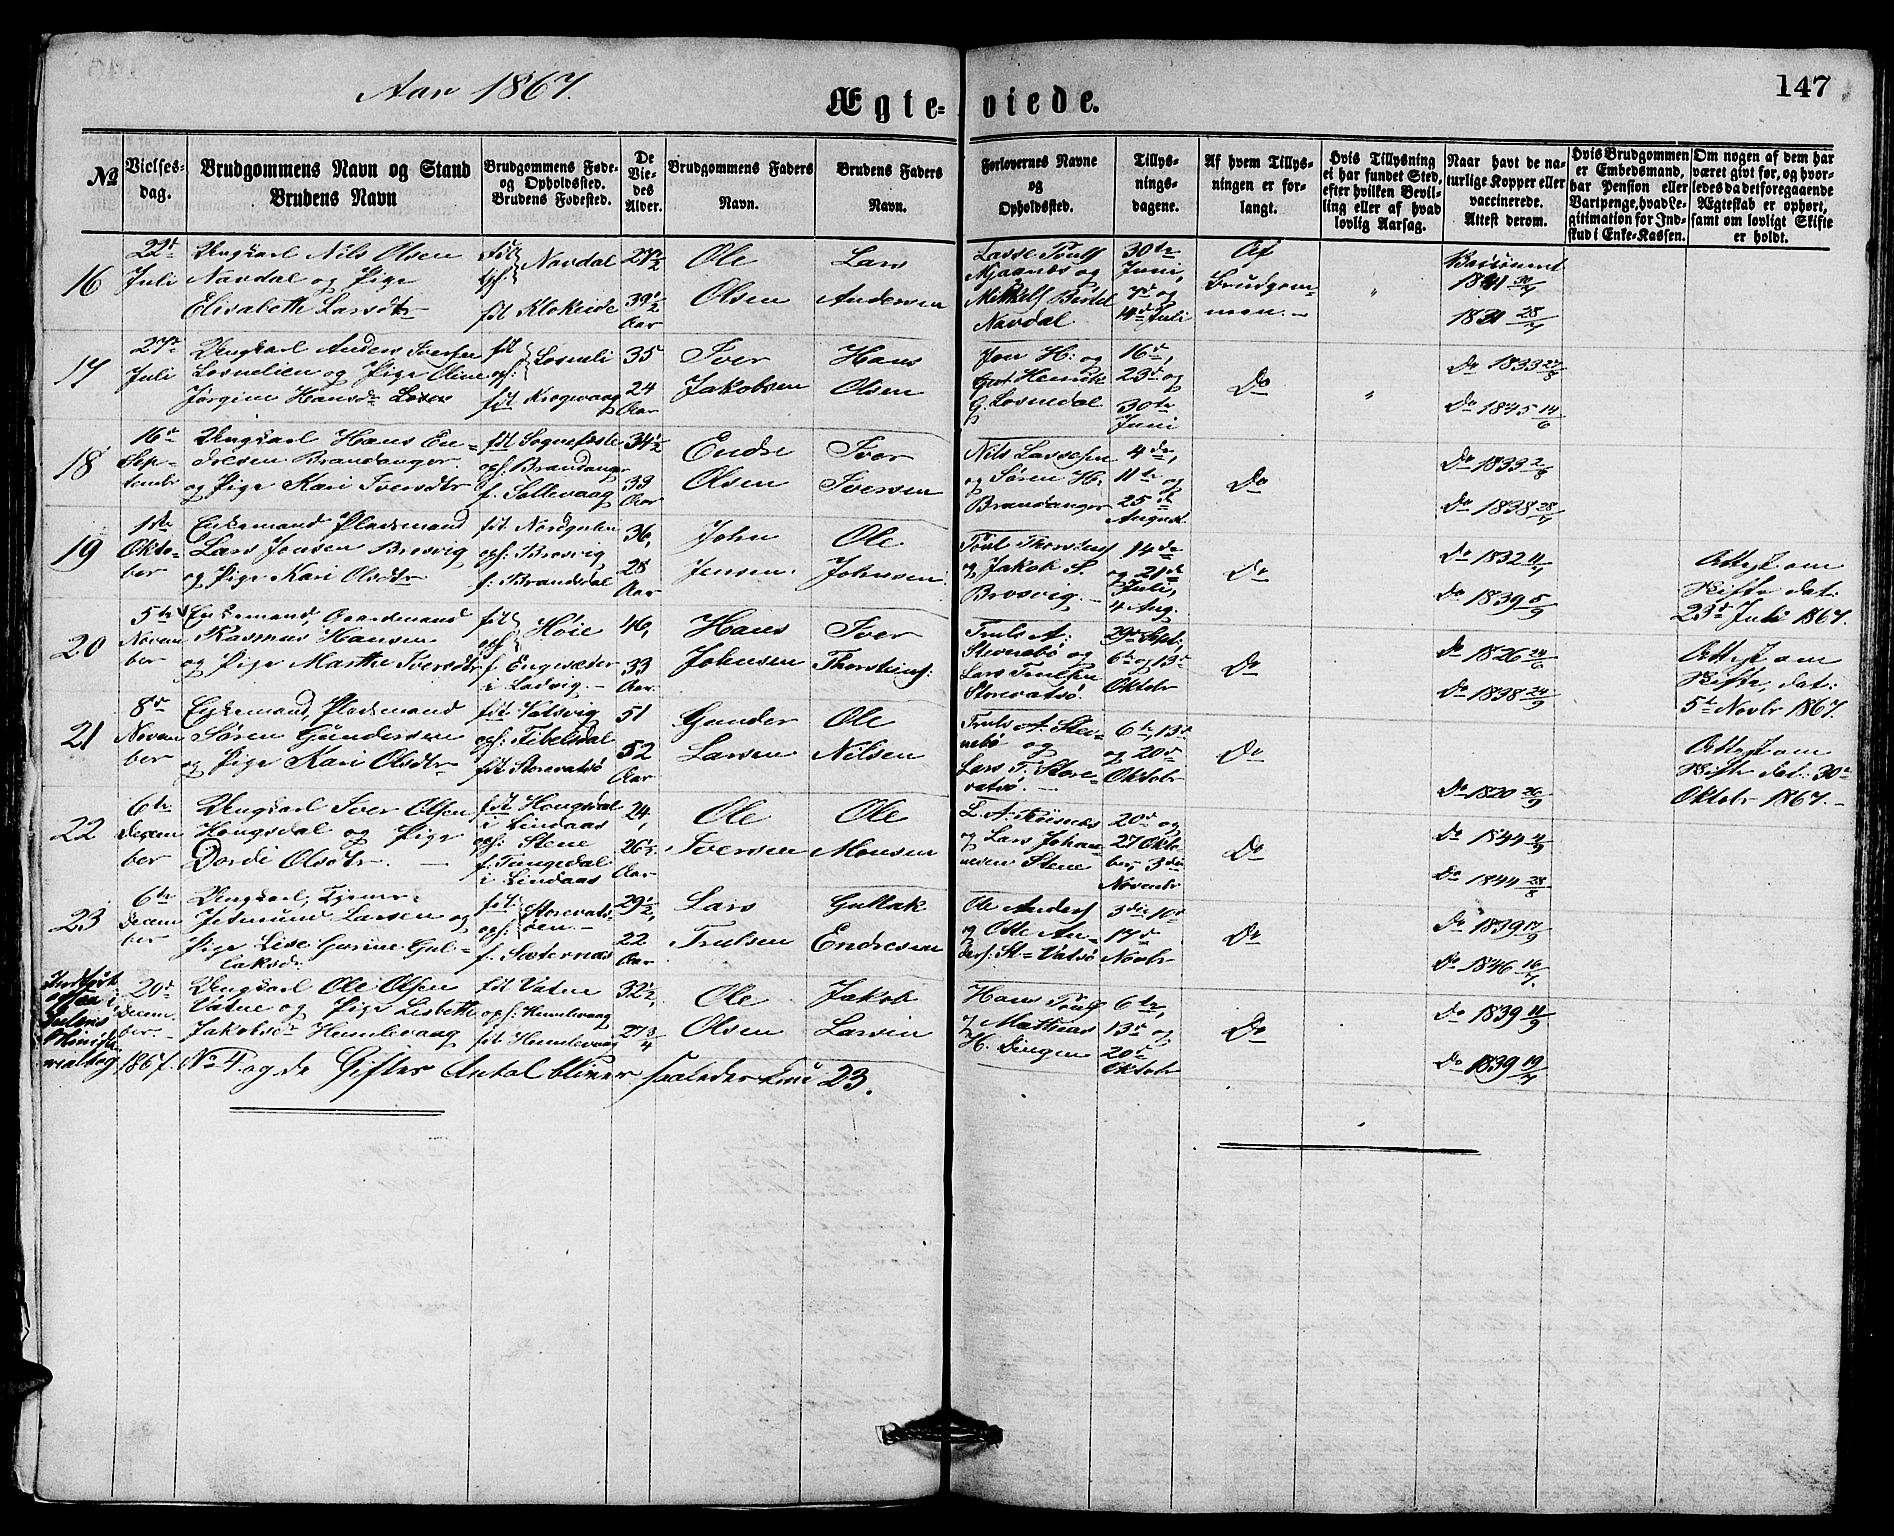 Aar 1867.
Ægte- viede.
147
No
Vielses-
dag.
Brudgommens Navn og Stand
Brudens Navn
Brudgommens Føde-
og Opholdssted.
Brudens Fødested.
De
Vie-
des
Alder.
Brudgommens Faders
Navn.
Brudens Faders
Navn.
Forlovernes Navne
og
Opholdssted.
Tillys-
nings-
dagene.
Af hvem Tillys-
ningen er for-
langt.
Hvis Tillysning
ei har fundet Sted,
efter hvilken Bevil-
ling eller af hvad
lovlig Aarsag.
Naar havt de na-
turlige Kopper eller
vaccinerede.
Attest derom.
Hvis Brudgommen
er Embedsmand,
har Pension eller
Vartpenge, hvad Le-
gitimation for Ind-
skud i Enke-Kassen.
Om nogen af dem har
været givt før, og hvor-
ledes da det foregaaende
Ægteskab er ophørt,
samt om lovligt Skifte
er holdt.
16
22d
Juli
Ungkarl Nils Olsen
Navdal og Pige
Elisabeth Larsdtr
Navdal
fdt Klokeide
27½
39½
Aar
Ole
Olsen
Lars
Andersen
Navdal
30te
Juni,
7de og
14de Juli
Af
Brudgom-
men.
"
1831 28/7
17
27de
Juli
Ungkarl Anders Iversen
Losnelien og Pige Oline
Jørgine Hansdr
Losneli
fdt Krogevaag
35
24
Aar
Iver
Jakobsen
Hans
Olsen
Iver H: og
G. Losnedal
16d,
23d og
30te
Juni
Do
"
Do 1833 27/8
Do 1845 14/6
18
16d
Sep-
tembr
Ungkarl Hans En-
dresen Brandanger
og Pige Kari Iversdtr
fdt Sognefæste
opf: Brandanger
f. Sollevaag
34½
33
Aar
Endre
Olsen
Iver
Iversen
Nils Lassesen
og Søren H.
Brandanger
4de,
11te og
25de
August
Do
Do 1833 2/8
Do 1838 28/7
19
1ste
Okto-
ber
Enkemand Pladsmand
Lars Jensen Brosvig
og Pige Kari Olsdtr
fdt Nordgulen
opf: Brosvig
f: Brandsdal
36,
28
Aar
John
Jensen.
Ole
Johnsen
og Jakob S.
Brosvig.
14de
og 21de
Juli,
4 Aug.
Do
Do 1832 4/7
Do 1839 5/9
Attest om
Skifte dat:
23d Juli 1867.
20
5te
Novem
ber
Enkemand, Gaardmand
Rasmus Hansen
og Pige Marthe Iversdtr
Høie
f. Engesæter
i Ladvig.
46,
33
Aar.
Hans
Johnsen
Iver
Thorsteins:
Truls A:
Stenebø og
Lars Trulsen
Storevatsø.
29d Sept,
6te og 13d
Oktobr
Do
Do 1826 24/6
Do 1838 24/9
Attest om
Skifte, dat:
5te Novbr 1867.
21
8d
Novem
ber
Enkemand, Pladsmand
Søren Gundersen
og Pige Kari Olsdtr
fdt Vatsvig
opf: Tibelsdal
fdt Storevatsø
51
52
Aar
Gunder
Larsen
Ole
Nilsen
Truls A. Ste-
nebø og
Lars T. Store-
vatsø.
6te, 13d
og 20d
Oktobr
Do
Do 1820 26/9
Attest om
Skifte dat: 30te
Oktobr 1867.
22
6te
Decem
ber
Ungkarl Iver Olsen
Hougsdal og Pige
Dordi Olsdtr.
fdt Hougsdal
i Lindaas
opf: Stene
f. Tungedal
i Lindaas
24,
26½
Aar
Ole
Iversen
Ole
Monsen
og Lars Johan-
nesen Stene
20d og
27 Okto-
ber, 3die
Novembr
Do
Do 1844 4/9
Do 1844 28/8
23
6te
Decem
ber
Jetmund Larsen og
Pige Lise Gurine Gul-
laksdr.
Storevats-
øen.
f. Sæternæs
29½,
22
Aar
Lars
Trulsen
Gullak
Endresen
Ole Anders
og Otte An-
ders: St= Vatsø
3die 10d
17de
Novbr
Do
Do 1839 17/9
Do 1846 16/7.
20d
Decem-
ber.
Ungkarl Ole Olsen
Vatne og Pige Lisbethe
Jakobsdr Humlevaag
fdt Vatne
opf: Humlevaag
fdt Humlevaag
32½,
27¾
Ole
Olsen
Jakob
Larsen
og Mathias
H. Dingen
6te,
13d og
20de
Oktobr
Do
Do 1839 11/9
Do 1839 19/7
1867. No 4. og de Giftes Antal bliver saaledes kun 23.